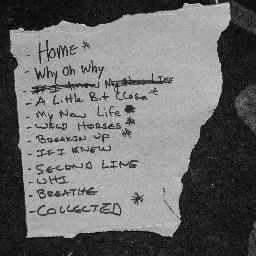 - HOME *
- Why Oh Why
- A Little Bit Closer *
- My New Life *
- WILD HORSES *
- BREAKIN UP *
- IF I KNEW
- SECOND LINE
- UHI
- BREATHE
- COLLECTED *